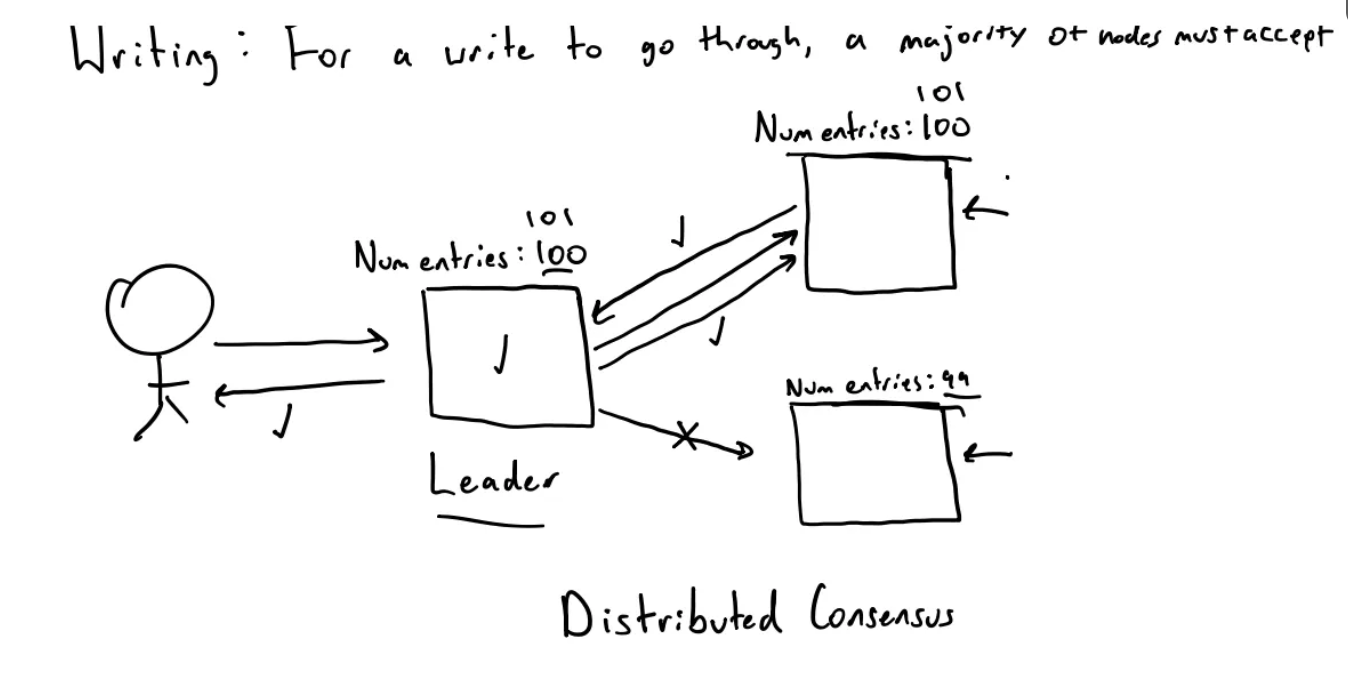 Writing: For a write to go through, a majority of nodes must accept
101
Num entries: 100
101
Num entries: 100
Num entries: 99
Leader
Distributed Consensus